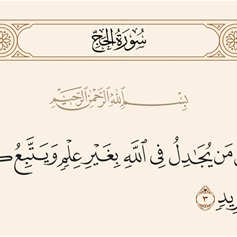 سُورَةُ الحَجِّ
بِسْمِ اللَّهِ الرَّحْمَٰنِ الرَّحِيمِ
مَن يُجَٰدِلُ فِى ٱللَّهِ بِغَيْرِ عِلْمٍ وَيَتَّبِعُ
٣